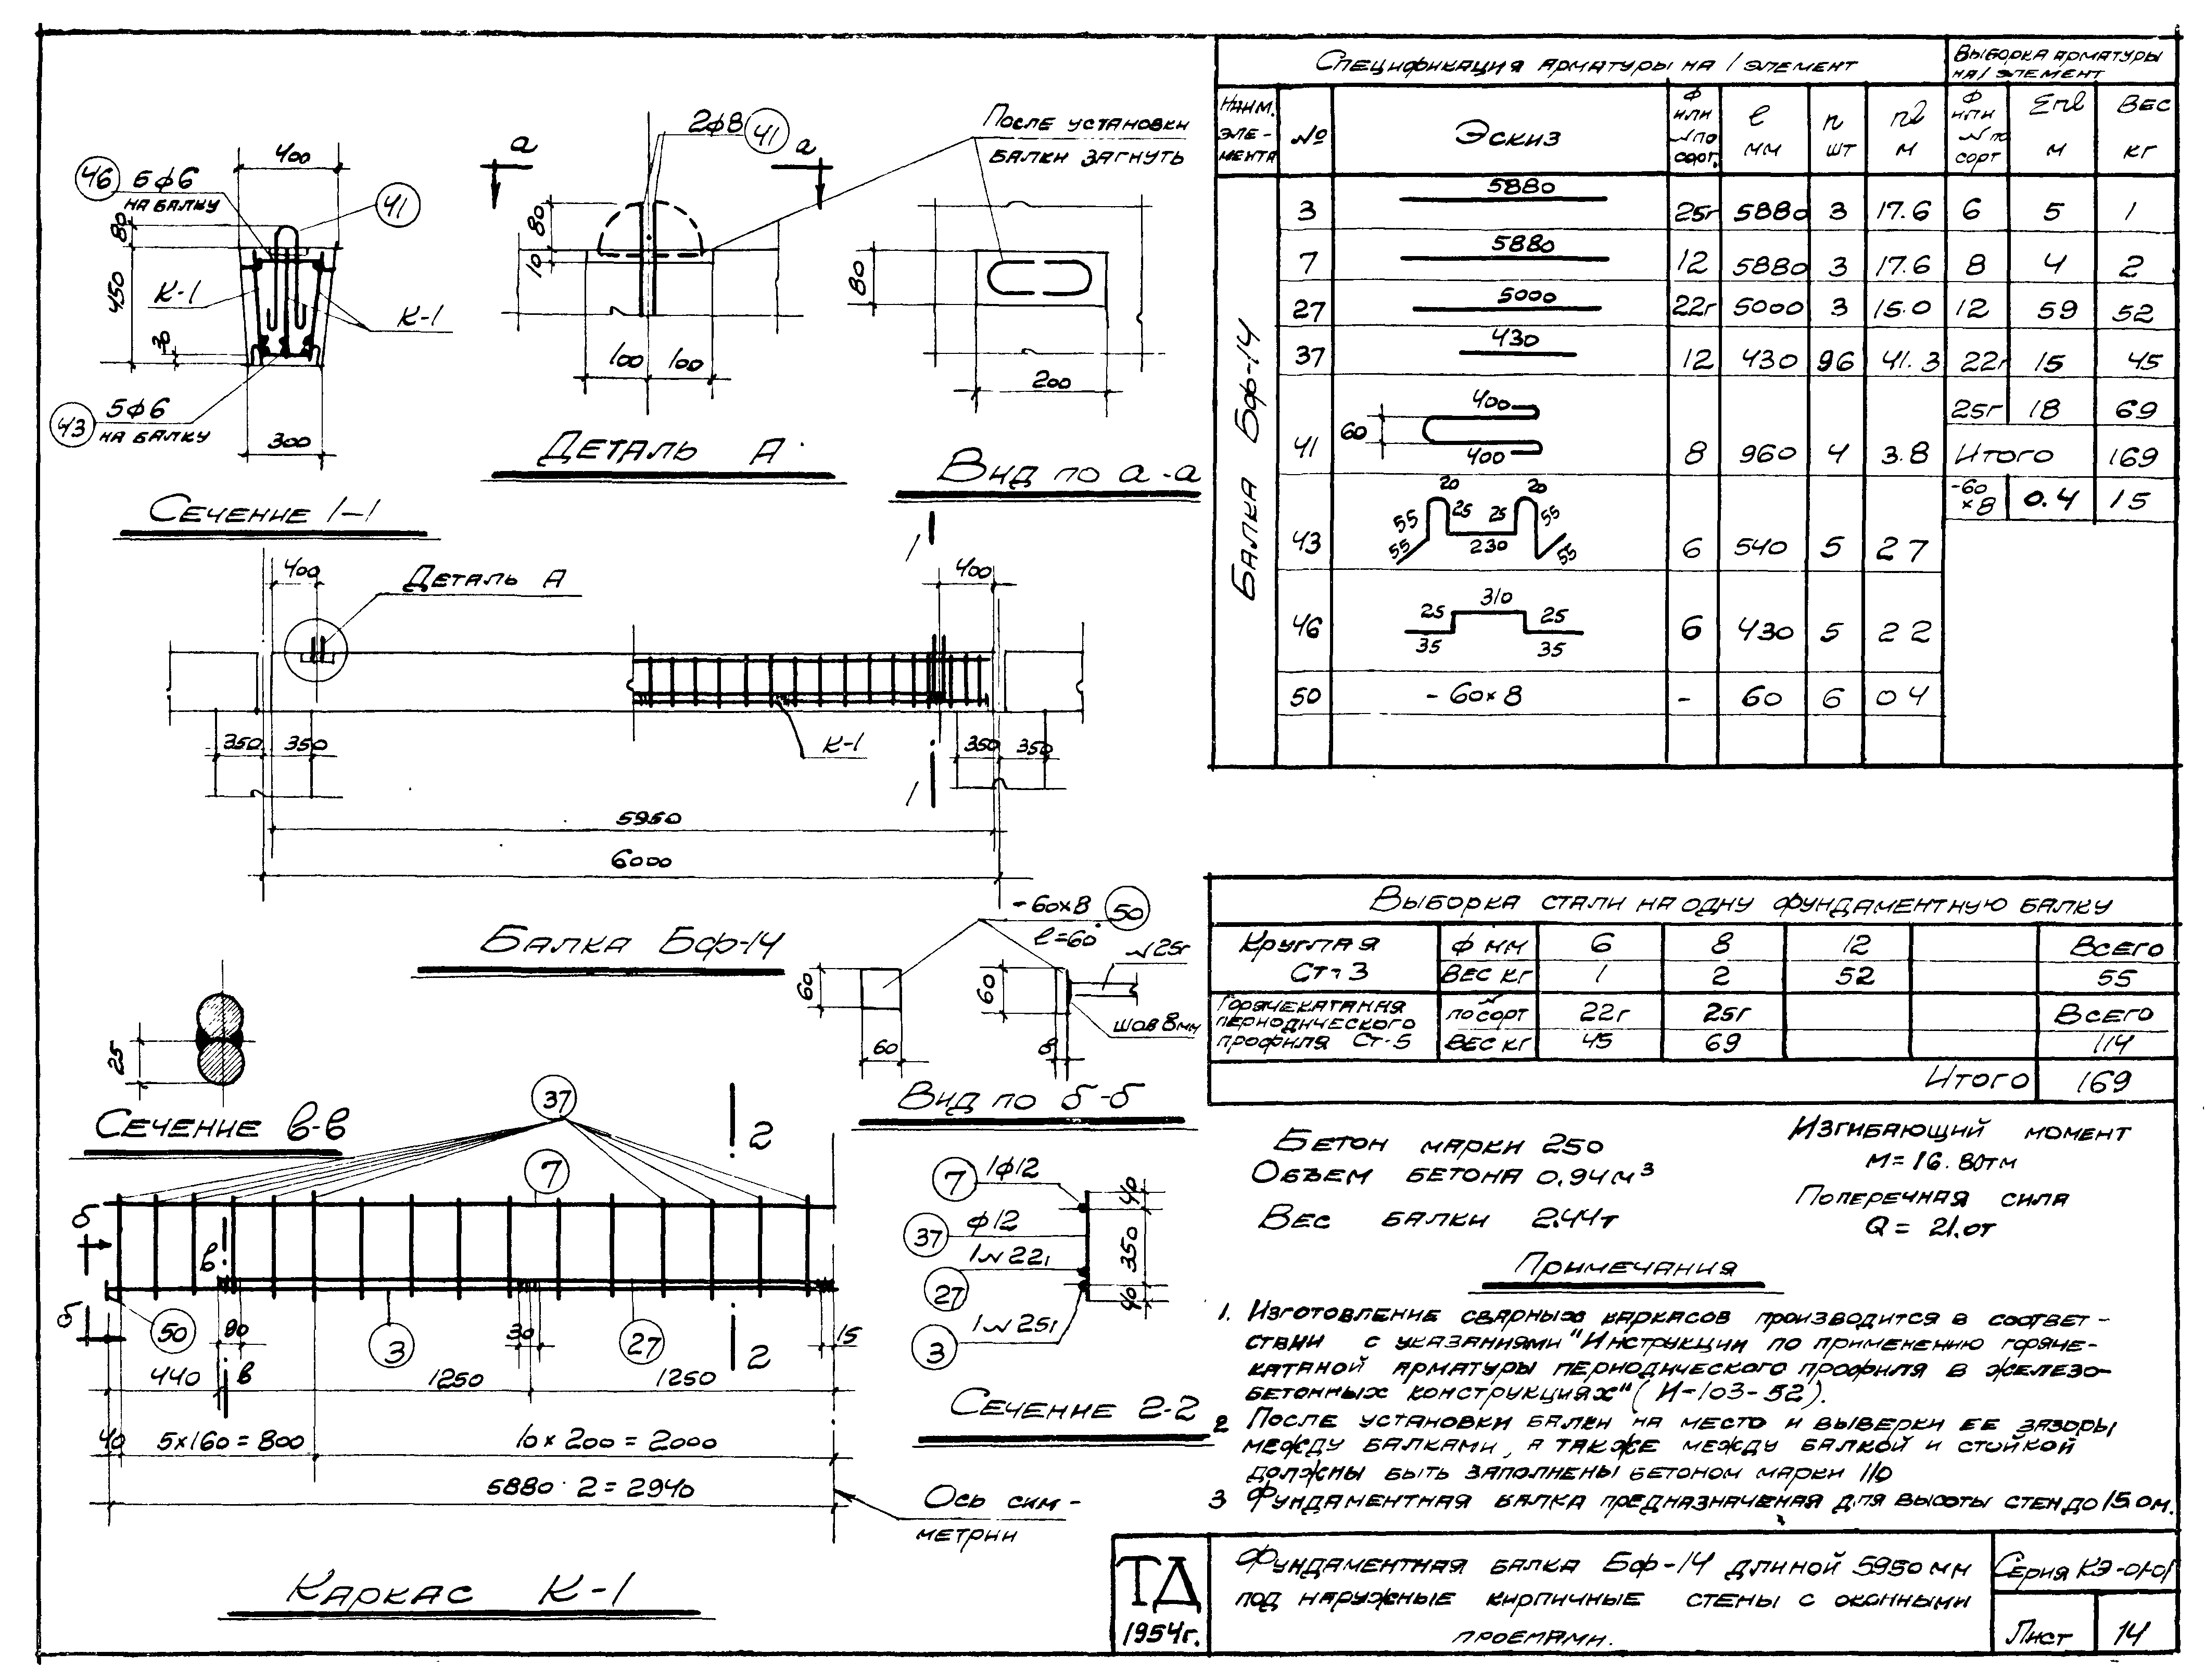 400
46 5ф6
на балку
41
80
450
30
К-1
К-1
43 5ф6
на балку
300
Сечение 1-1
2ф8 41
а
а
80
10
100
100
Деталь А
После установки
балки загнуть
80
200
Вид по а-а
400
Деталь А
1
400
К-1
350
350
350
350
1
5950
6000
Балка Бф-14
25
Сечение в-в
-60×8 50
ℓ=60
№25г
60
60
60
8
шов 8мм
Вид по б-б
37
7
2
б
в
б
50
90
3
30
27
15
2
440
в
1250
1250
40
5×160=800
10×200=2000
5880:2=2940
Ось сим-
метрии
Каркас К-1
7 1ф12
37 ф12
1№22г
27
1№25г
3
40
350
40
Сечение 2-2
Спецификация арматуры на 1 элемент
Выборка арматуры
на 1 элемент
Наим. эле-мента
№
Эскиз
ф или № по сорт.
ℓ мм
n шт
nℓ м
ф или № по сорт
Σnℓ м
Вес кг
Балка Бф-14
3 5880 25г 5880 3 17.6 6 5 1
7 5880 12 5880 3 17.6 8 4 2
27 5000 22г 5000 3 15.0 12 59 52
37 430 12 430 96 41.3 22г 15 45
25г 18 69
41 60 400 400 8 960 4 3.8 Итого 169
-60×8 0.4 15
43 55 55 20 25 230 25 20 55 55 6 540 5 27
46 35 25 310 25 35 6 430 5 22
50 -60×8 - 60 6 04
Выборка стали на одну фундаментную балку
Круглая Ст-3 ф мм 6 8 12 Всего
Вес кг 1 2 52 55
Горячекатаная периодического профиля Ст-5 № по сорт 22г 25г Всего
Вес кг 45 69 114
Итого 169
Бетон марки 250
Объем бетона 0.94м³
Вес балки 2.44т
Изгибающий момент
М=16.80тм
Поперечная сила
Q=21.0т
Примечания
1. Изготовление сварных каркасов производится в соответ-
ствии с указаниями "Инструкции по применению горяче-
катаной арматуры периодического профиля в железо-
бетонных конструкциях" (И-103-52).
2 После установки балки на место и выверки ее зазоры
между балками, а также между балкой и стойкой
должны быть заполнены бетоном марки 110
3 Фундаментная балка предназначеная для высоты стен до 15.0м.
ТД
1954г.
Фундаментная балка Бф-14 длиной 5950мм
под наружные кирпичные стены с оконными
проемами.
Серия КЭ-01-01
Лист 14